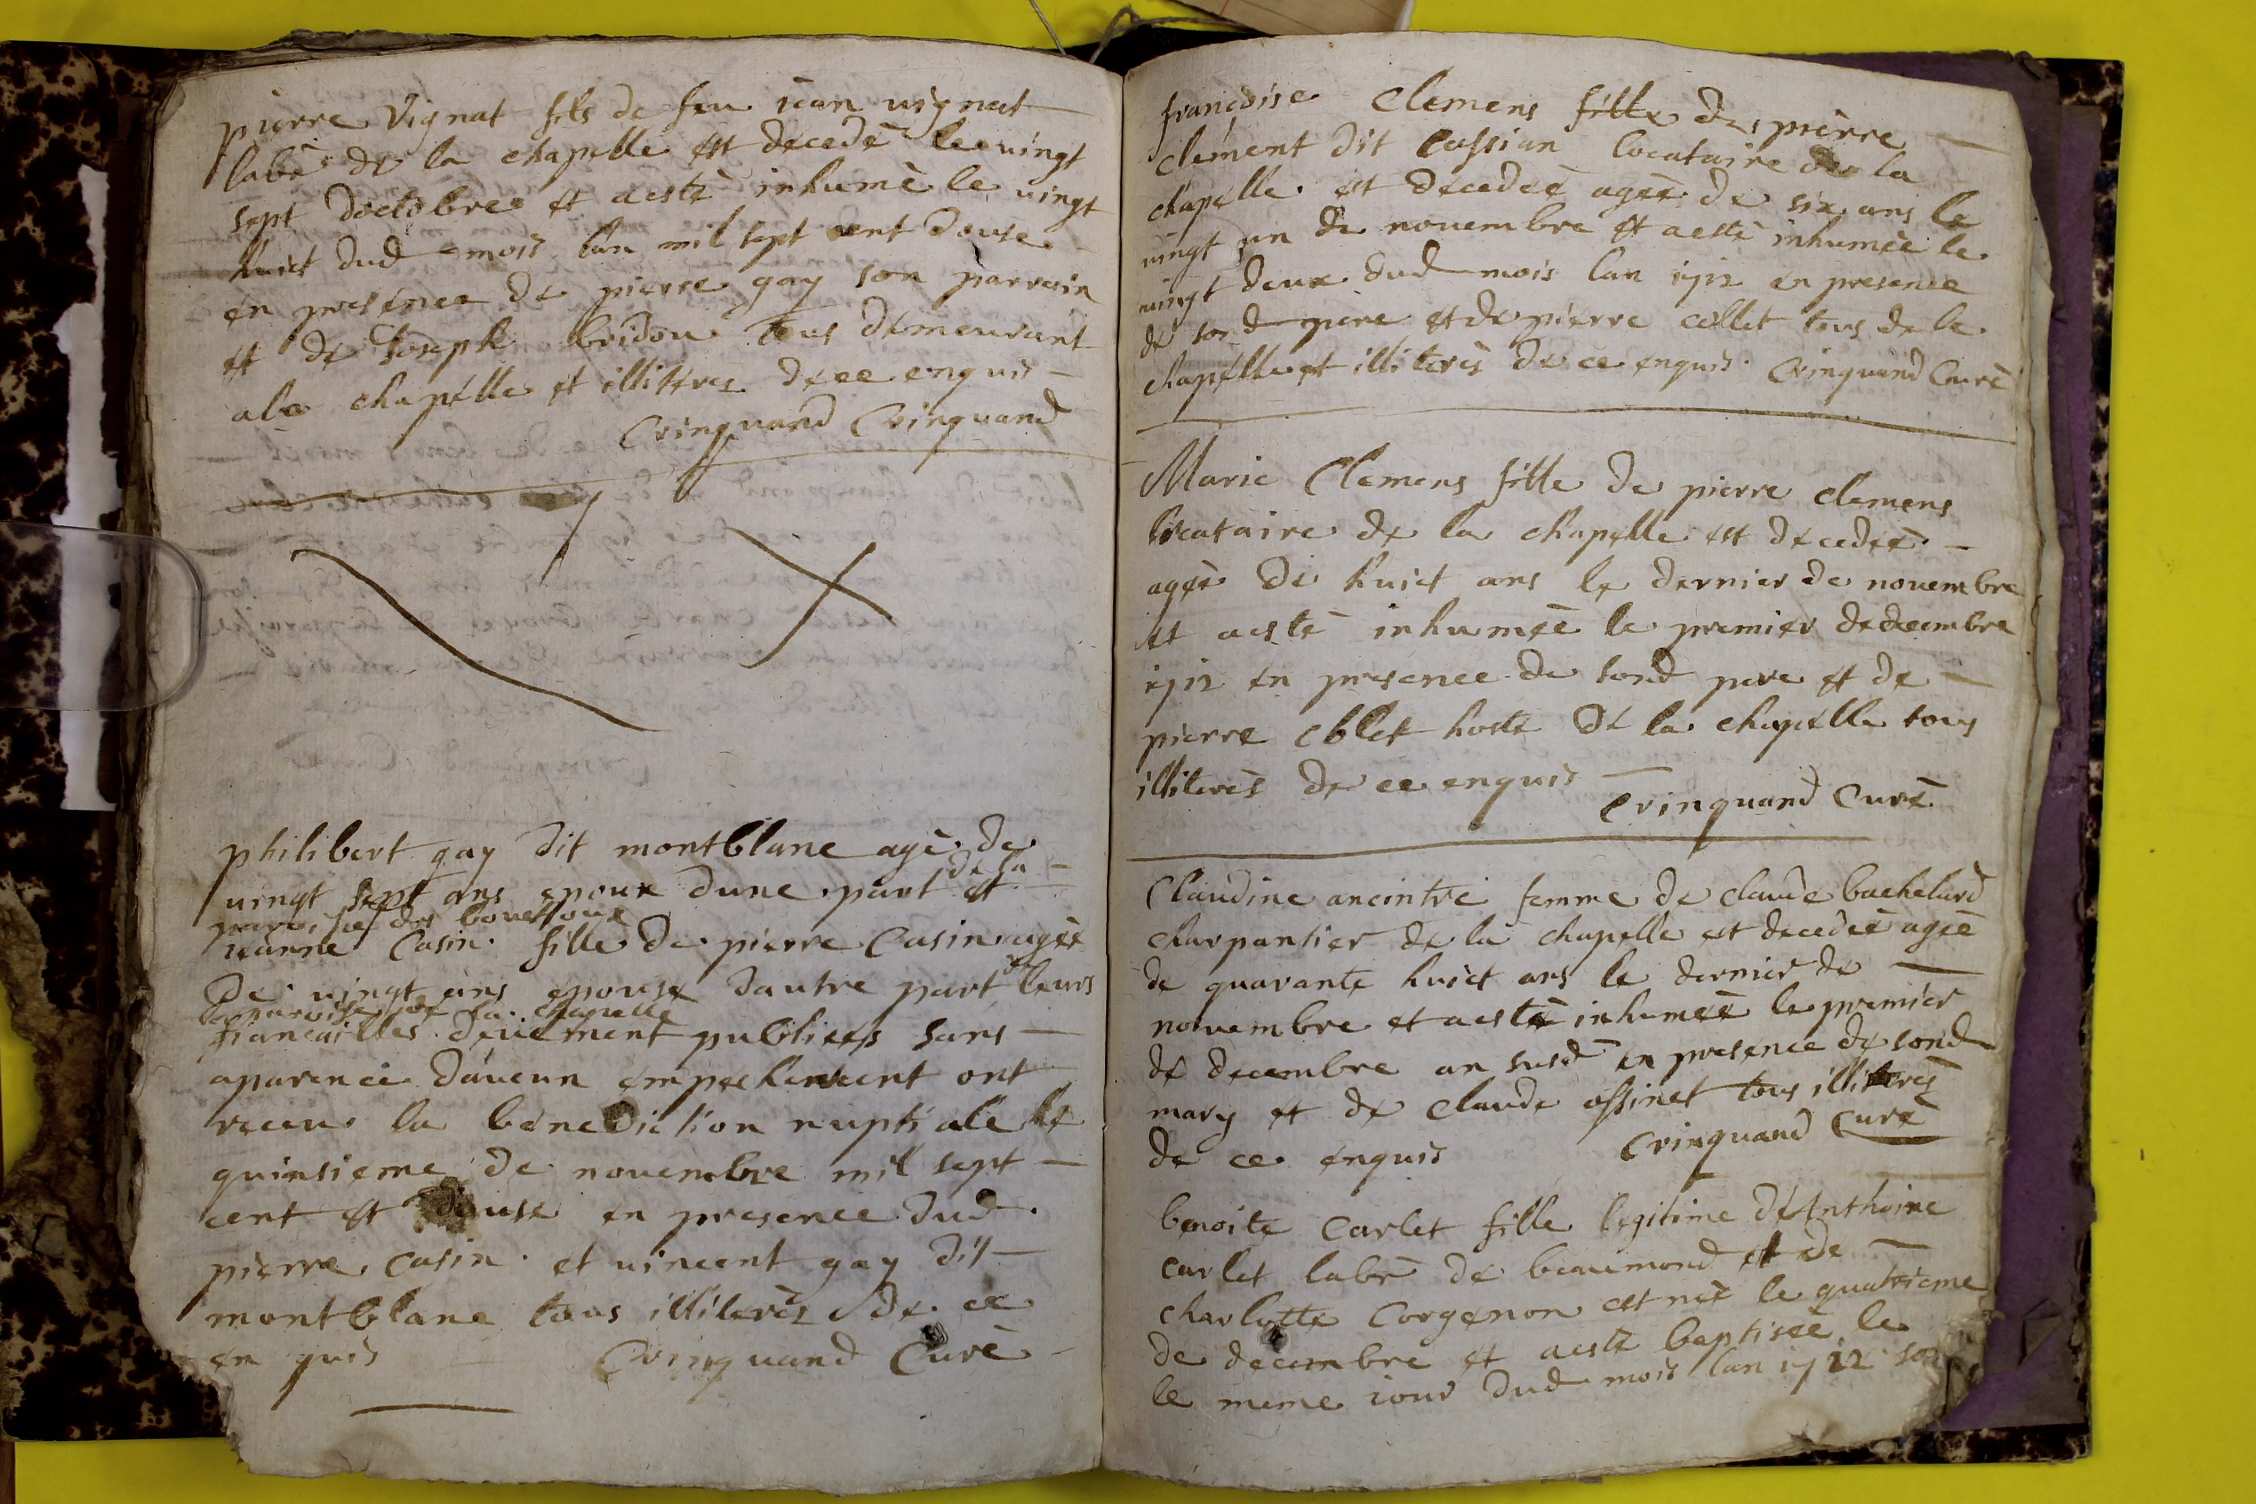 pierre Vignat fils de feu iean uignat
labè de la chapelle est decedè le uingt
sept doctobre et aestè inhumè le uingt
huict dud mois lan mil sept cent douse
en presence de pierre gay son parrain
et de Joseph bridon tous demeurant
ala chapelle et illiteres de ce enquis
Crinquand Crinquand
philibert gay dit montblanc agè de
uingt sept ans epoux dune part et
de la
paroisse des
ieanne Casin fille de pierre Casin agèe
de uingt ans epouse dautre part leurs
paroisse de la chapelle
fiancailles deuement publiees sans
aparence daucun empechement ont
receu la benediction nuptiale le
quinsieme de nouembre mil sept
cent et douse en presence dud
pierre Casin et uincent gay dit
montblanc tous illiterès de ce
en quis Crinquand Curè
françoise Clemens fille de pierre
clement dit Cassian locataire de la
chapelle est decedeè ageè de six ans le
uingt un de nouembre et aestè inhumèe le
uingt deux dud mois lan 1712 en presence
de sond pere et de pierre collet tous de la
chapelle et illiterès de ce enquis Crinquand Curè
Marie Clemens fille de pierre clemens
locataire de la chapelle est decedeè
ageè de huict ans le dernier de nouembre
et aestè inhumèè le premier de decembre
1712 en presence de sond pere et de
pierre collet hoste de la chapelle tous
illiterès de ce enquis Crinquand Curè
Claudine ancintre femme de claude bachelard
charpantier de la chapelle est decedeè ageè
de quarante huict ans le dernier de
nouembre et aestè inhumeè le premier
de decembre an susd en presence de sond
mary et de claude assinet tous illiterès
de ce enquis Crinquand Curè
benoite Carlet fille legitime d'Anthoine
carlet labrè de beaumond et de
charlotte Corgenon est neè le quatrieme
de decembre et aestè baptiseè le
le meme iour dud mois lan 1712 son